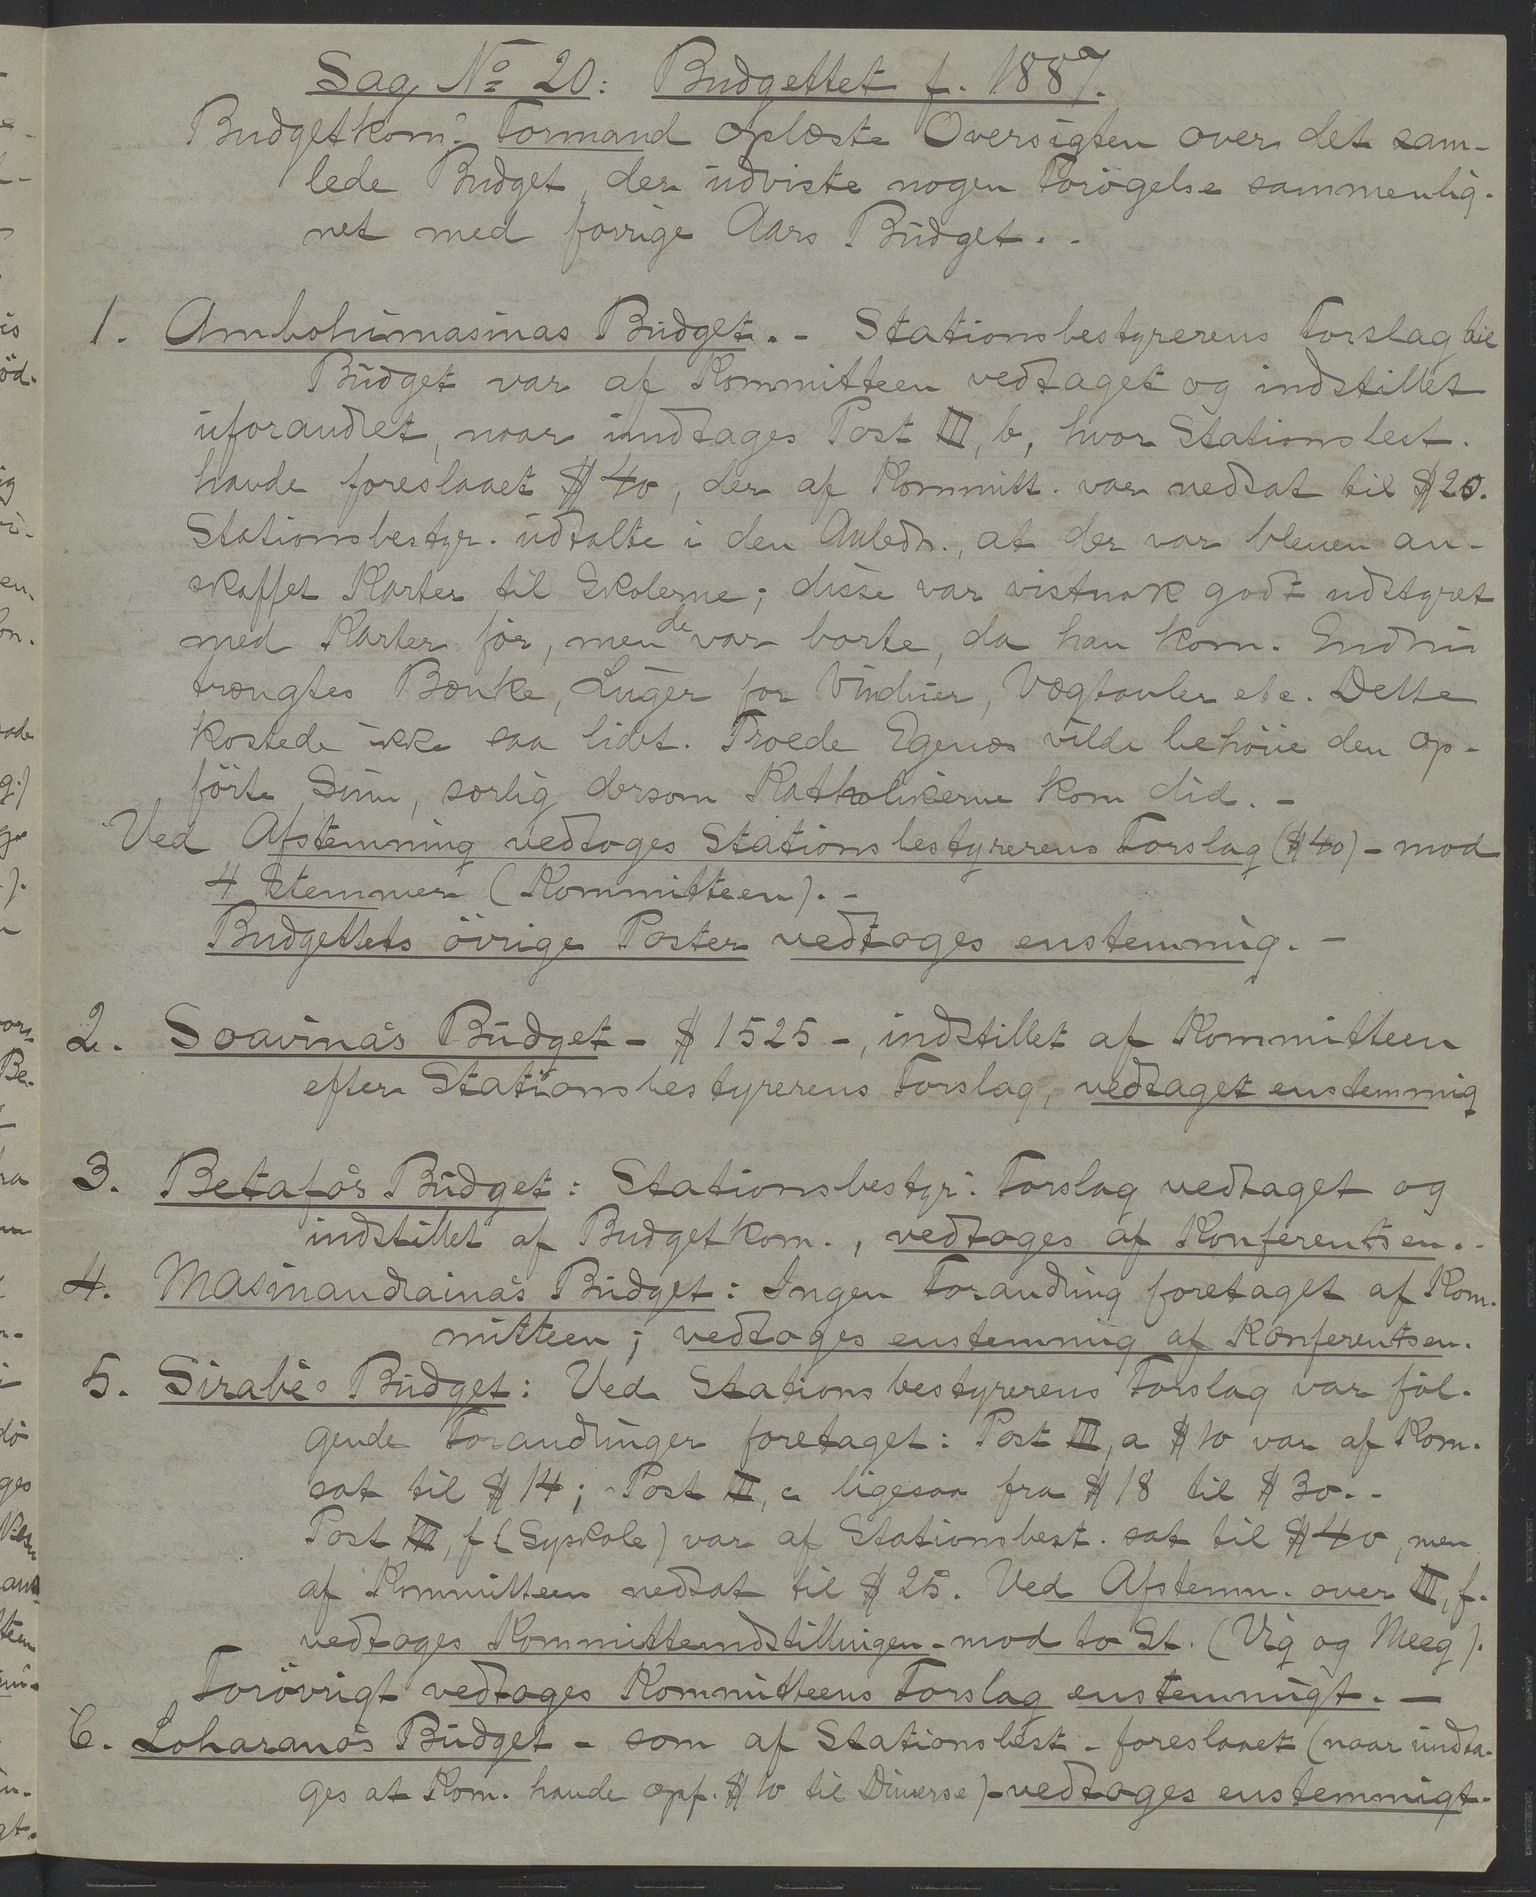 Sag No 20: Budgettet f. 1887.
Budgetkom:s Formand oplæste Oversigten over det sam-
lede Budget, der udviste nogen Forögelse sammenlig-
net med forrige Aars Budget. -
1. Ambohimasinas Budget. - Stationsbestyrerens Forslag til
Budget var af Kommitteen vedtaget og indstillet
uforandret, naar undtages Post III, b, hvor Stationsbest.
havde foreslaaet $ 40, der af Kommitt. var nedsat til $ 20.
Stationsbestyr. udtalte i den Anledn., at der var bleven an-
skaffet Karter til Skolerne; disse var vistnok godt udstyret
med Karter för, men de var borte, da han kom. Endnu
trængtes Bænke, Luger for Vinduer, Vægtavler etc. Dette
kostede ikke saa lidet. Troede Egenæs vilde behöve den op-
förte Sum, særlig dersom Katholikerne kom did. -
Ved Afstemning vedtoges Stationsbestyrerens Forslag ($ 40) - mod
4 Stemmer (Kommitteen). -
Budgettets övrige Poster vedtoges enstemmig. -
2. Soavina's Budget - $ 1525 -, indstillet af Kommitteen
efter Stationsbestyrerens Forslag, vedtaget enstemmig
3. Betafo's Budget: Stationsbestyr:s Forslag vedtaget og
indstillet af Budgetkom., vedtoges af Konferentsen. -
4. Masinandraina's Budget: Ingen Forandring foretaget af Kom-
mitteen; vedtoges enstemmig af Konferentsen.
5. Sirabe's Budget: Ved Stationsbestyrerens Forslag var föl-
gende Forandringer foretaget: Post III, a $ 10 var af Kom.
sat til $ 14; Post III, c ligesaa fra $ 18 til $ 30. -
Post III, f (Syskole) var af Stationsbest. sat til $ 40, men
af Kommitteen nedsat til $ 25. Ved Afstemn. over III, f.
vedtoges Kommitteindstillingen - mod to St. (Vig og Meeg).
Forövrigt vedtoges Kommitteens Forslag enstemmigt. -
6. Loharano's Budget - som af Stationsbest. foreslaaet (naar undta-
ges at Kom. havde opf. $ 10 til Diverse) - vedtoges enstemmigt. -